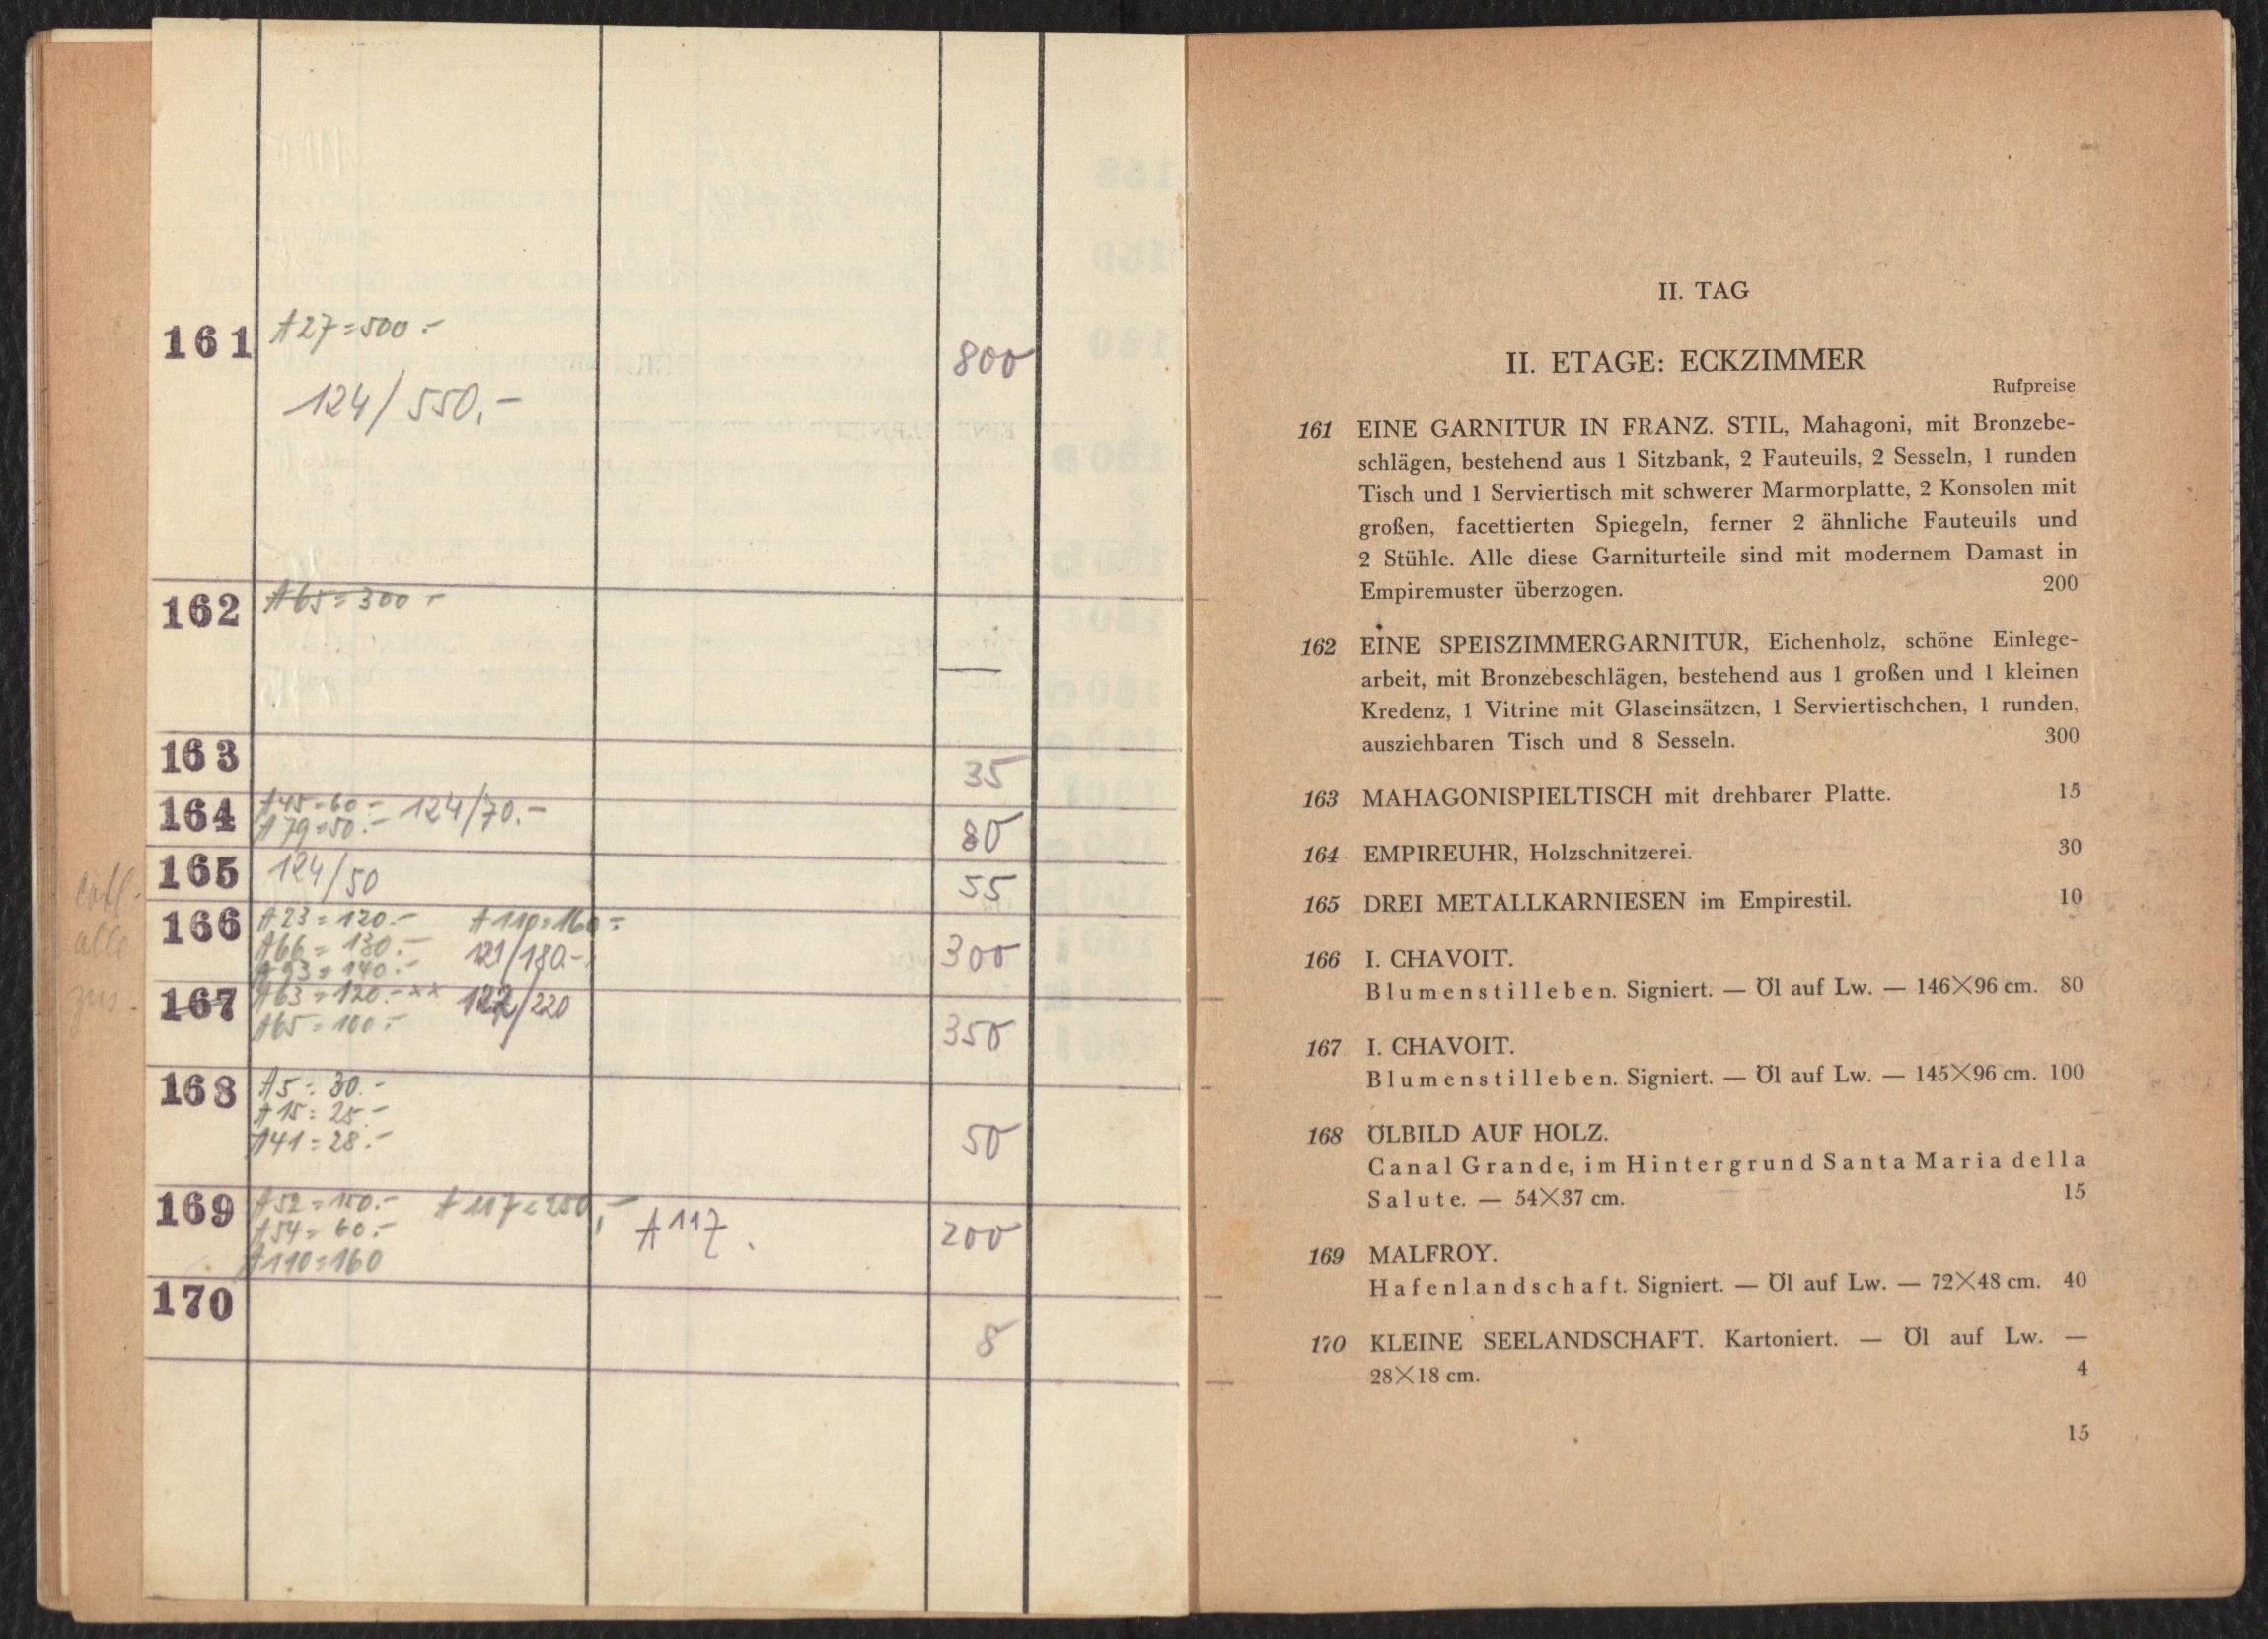 161 A27=500.-
124/550.-
800
162 A65=300-
—
163
35
164 A45=60.- 124/70.-
A79=50.-
80
165 124/50
55
alle
166 A23=120.- A110=160.-
A66=130.- 121/180.-
A93=140.-
300
167 A63=120.-xx 122/220
A65=100.-
350
168 A5=30.-
A15=25.-
A41=28.-
50
169 A52=150.- A117=250.-
A54=60.- A117.
A110=160
200
170
8
II. TAG
II. ETAGE: ECKZIMMER
Rufpreise
161 EINE GARNITUR IN FRANZ. STIL, Mahagoni, mit Bronzebe-
schlägen, bestehend aus 1 Sitzbank, 2 Fauteuils, 2 Sesseln, 1 runden
Tisch und 1 Serviertisch mit schwerer Marmorplatte, 2 Konsolen mit
großen, facettierten Spiegeln, ferner 2 ähnliche Fauteuils und
2 Stühle. Alle diese Garniturteile sind mit modernem Damast in
Empiremuster überzogen. 200
162 EINE SPEISZIMMERGARNITUR, Eichenholz, schöne Einlege-
arbeit, mit Bronzebeschlägen, bestehend aus 1 großen und 1 kleinen
Kredenz, 1 Vitrine mit Glaseinsätzen, 1 Serviertischchen, 1 runden,
ausziehbaren Tisch und 8 Sesseln. 300
163 MAHAGONISPIELTISCH mit drehbarer Platte. 15
164 EMPIREUHR, Holzschnitzerei. 30
165 DREI METALLKARNIESEN im Empirestil. 10
166 I. CHAVOIT.
Blumenstilleben. Signiert. — Öl auf Lw. — 146×96 cm. 80
167 I. CHAVOIT.
Blumenstilleben. Signiert. — Öl auf Lw. — 145×96 cm. 100
168 ÖLBILD AUF HOLZ.
Canal Grande, im Hintergrund Santa Maria della
Salute. — 54×37 cm. 15
169 MALFROY.
Hafenlandschaft. Signiert. — Öl auf Lw. — 72×48 cm. 40
170 KLEINE SEELANDSCHAFT. Kartoniert. — Öl auf Lw. —
28×18 cm. 4
15